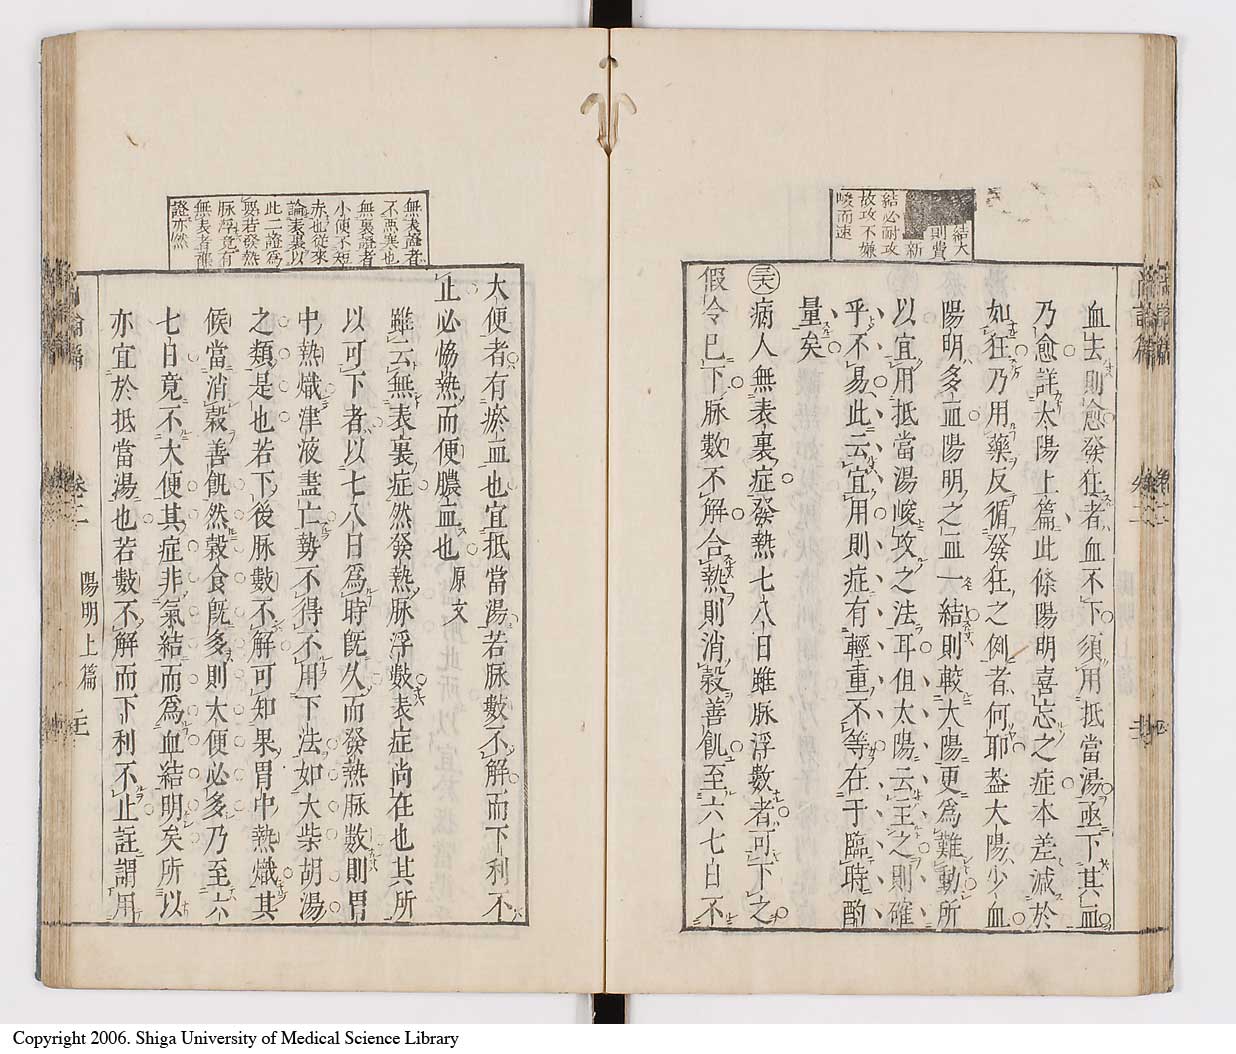 結大
則費
新
結必耐攻
故攻不嫌
峻而速
血去則愈發狂者血不下須用抵當湯亟下其血
乃愈詳太陽上篇此條陽明喜忘之症本差減於
如狂乃用藥反循發狂之例者何耶蓋太陽少血
陽明多血陽明之血一結則較太陽更爲難動所
以宜用抵當湯峻攻之法耳但太陽云主之則確
乎不易此云宜用則症有輕重不等在于臨時酌
量矣
病人無表裏症發熱七八日雖脉浮數者可下之
假令已下脉數不解合熱則消穀善飢至六七日不
無表證者
不惡寒也
無裏證者
小便不短
赤也從來
論表裏以
此二證爲
要若發熱
脉浮竟有
無表者雜
證亦然
大便者有瘀血也宜抵當湯若脉數不解而下利不
止必恊熱而便膿血也 原文
雖云無表裏症然發熱脉浮數表症尚在也其所
以可下者以七八日爲時旣久而發熱脉數則胃
中熱熾津液盡亡勢不得不用下法如大柴胡湯
之類是也若下後脉數不解可知果胃中熱熾其
候當消穀善飢然穀食旣多則大便必多乃至六
七日竟不大便其症非氣結而爲血結明矣所以
亦宜於抵當湯也若數不解而下利不止註謂用
尚論篇 卷二 陽明上篇